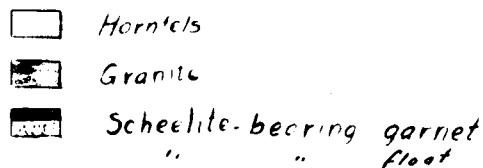 Hornfels
Granite
Scheelite-bearing garnet
" " float